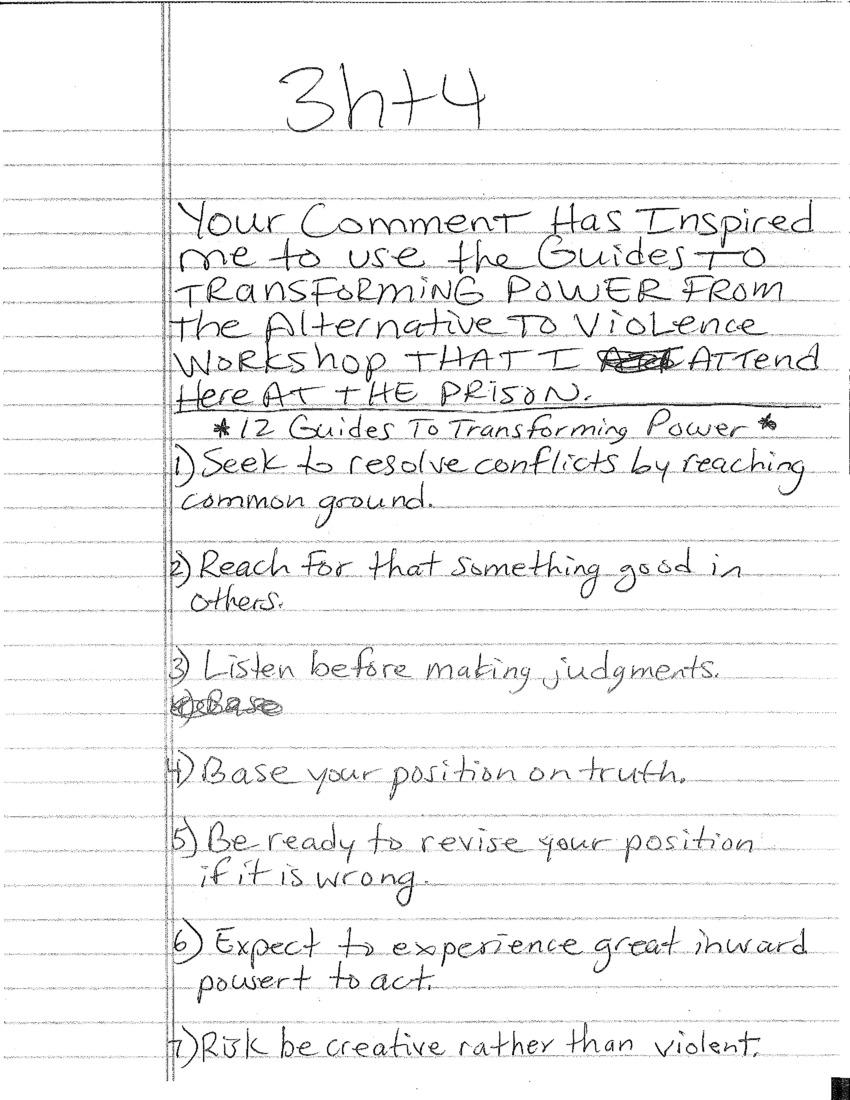 3ht4
Your Comment Has Inspired
me to use the Guides TO
TRANSFORMING POWER FROM
the Alternative To Violence
Workshop THAT I ATTend
Here AT THE PRISON.
* 12 Guides To Transforming Power *
1) Seek to resolve conflicts by reaching
common ground.
2) Reach for that something good in
others.
3) Listen before making judgments.
4) Base your position on truth.
5) Be ready to revise your position
if it is wrong.
6) Expect to experience great inward
powert to act.
7) Risk be creative rather than violent.